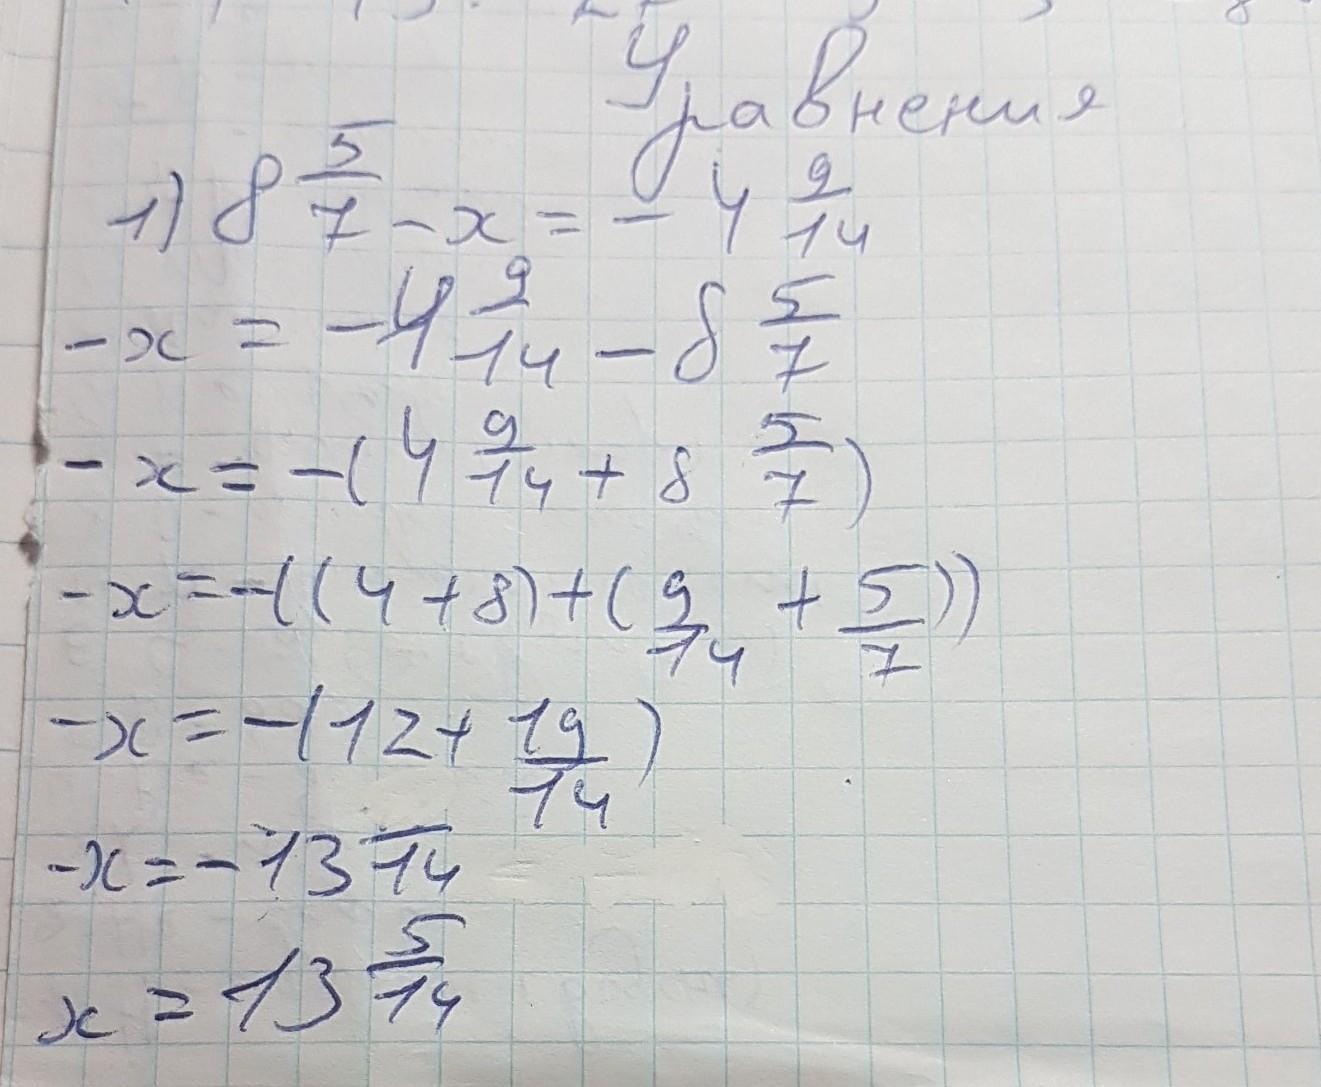 Уравнения
1) 8 5/7 - x = - 4 9/14
-x = -4 9/14 - 8 5/7
-x = -(4 9/14 + 8 5/7)
-x = -((4 + 8) + (9/14 + 5/7))
-x = -(12 + 19/14)
-x = -13 /14
x = 13 5/14